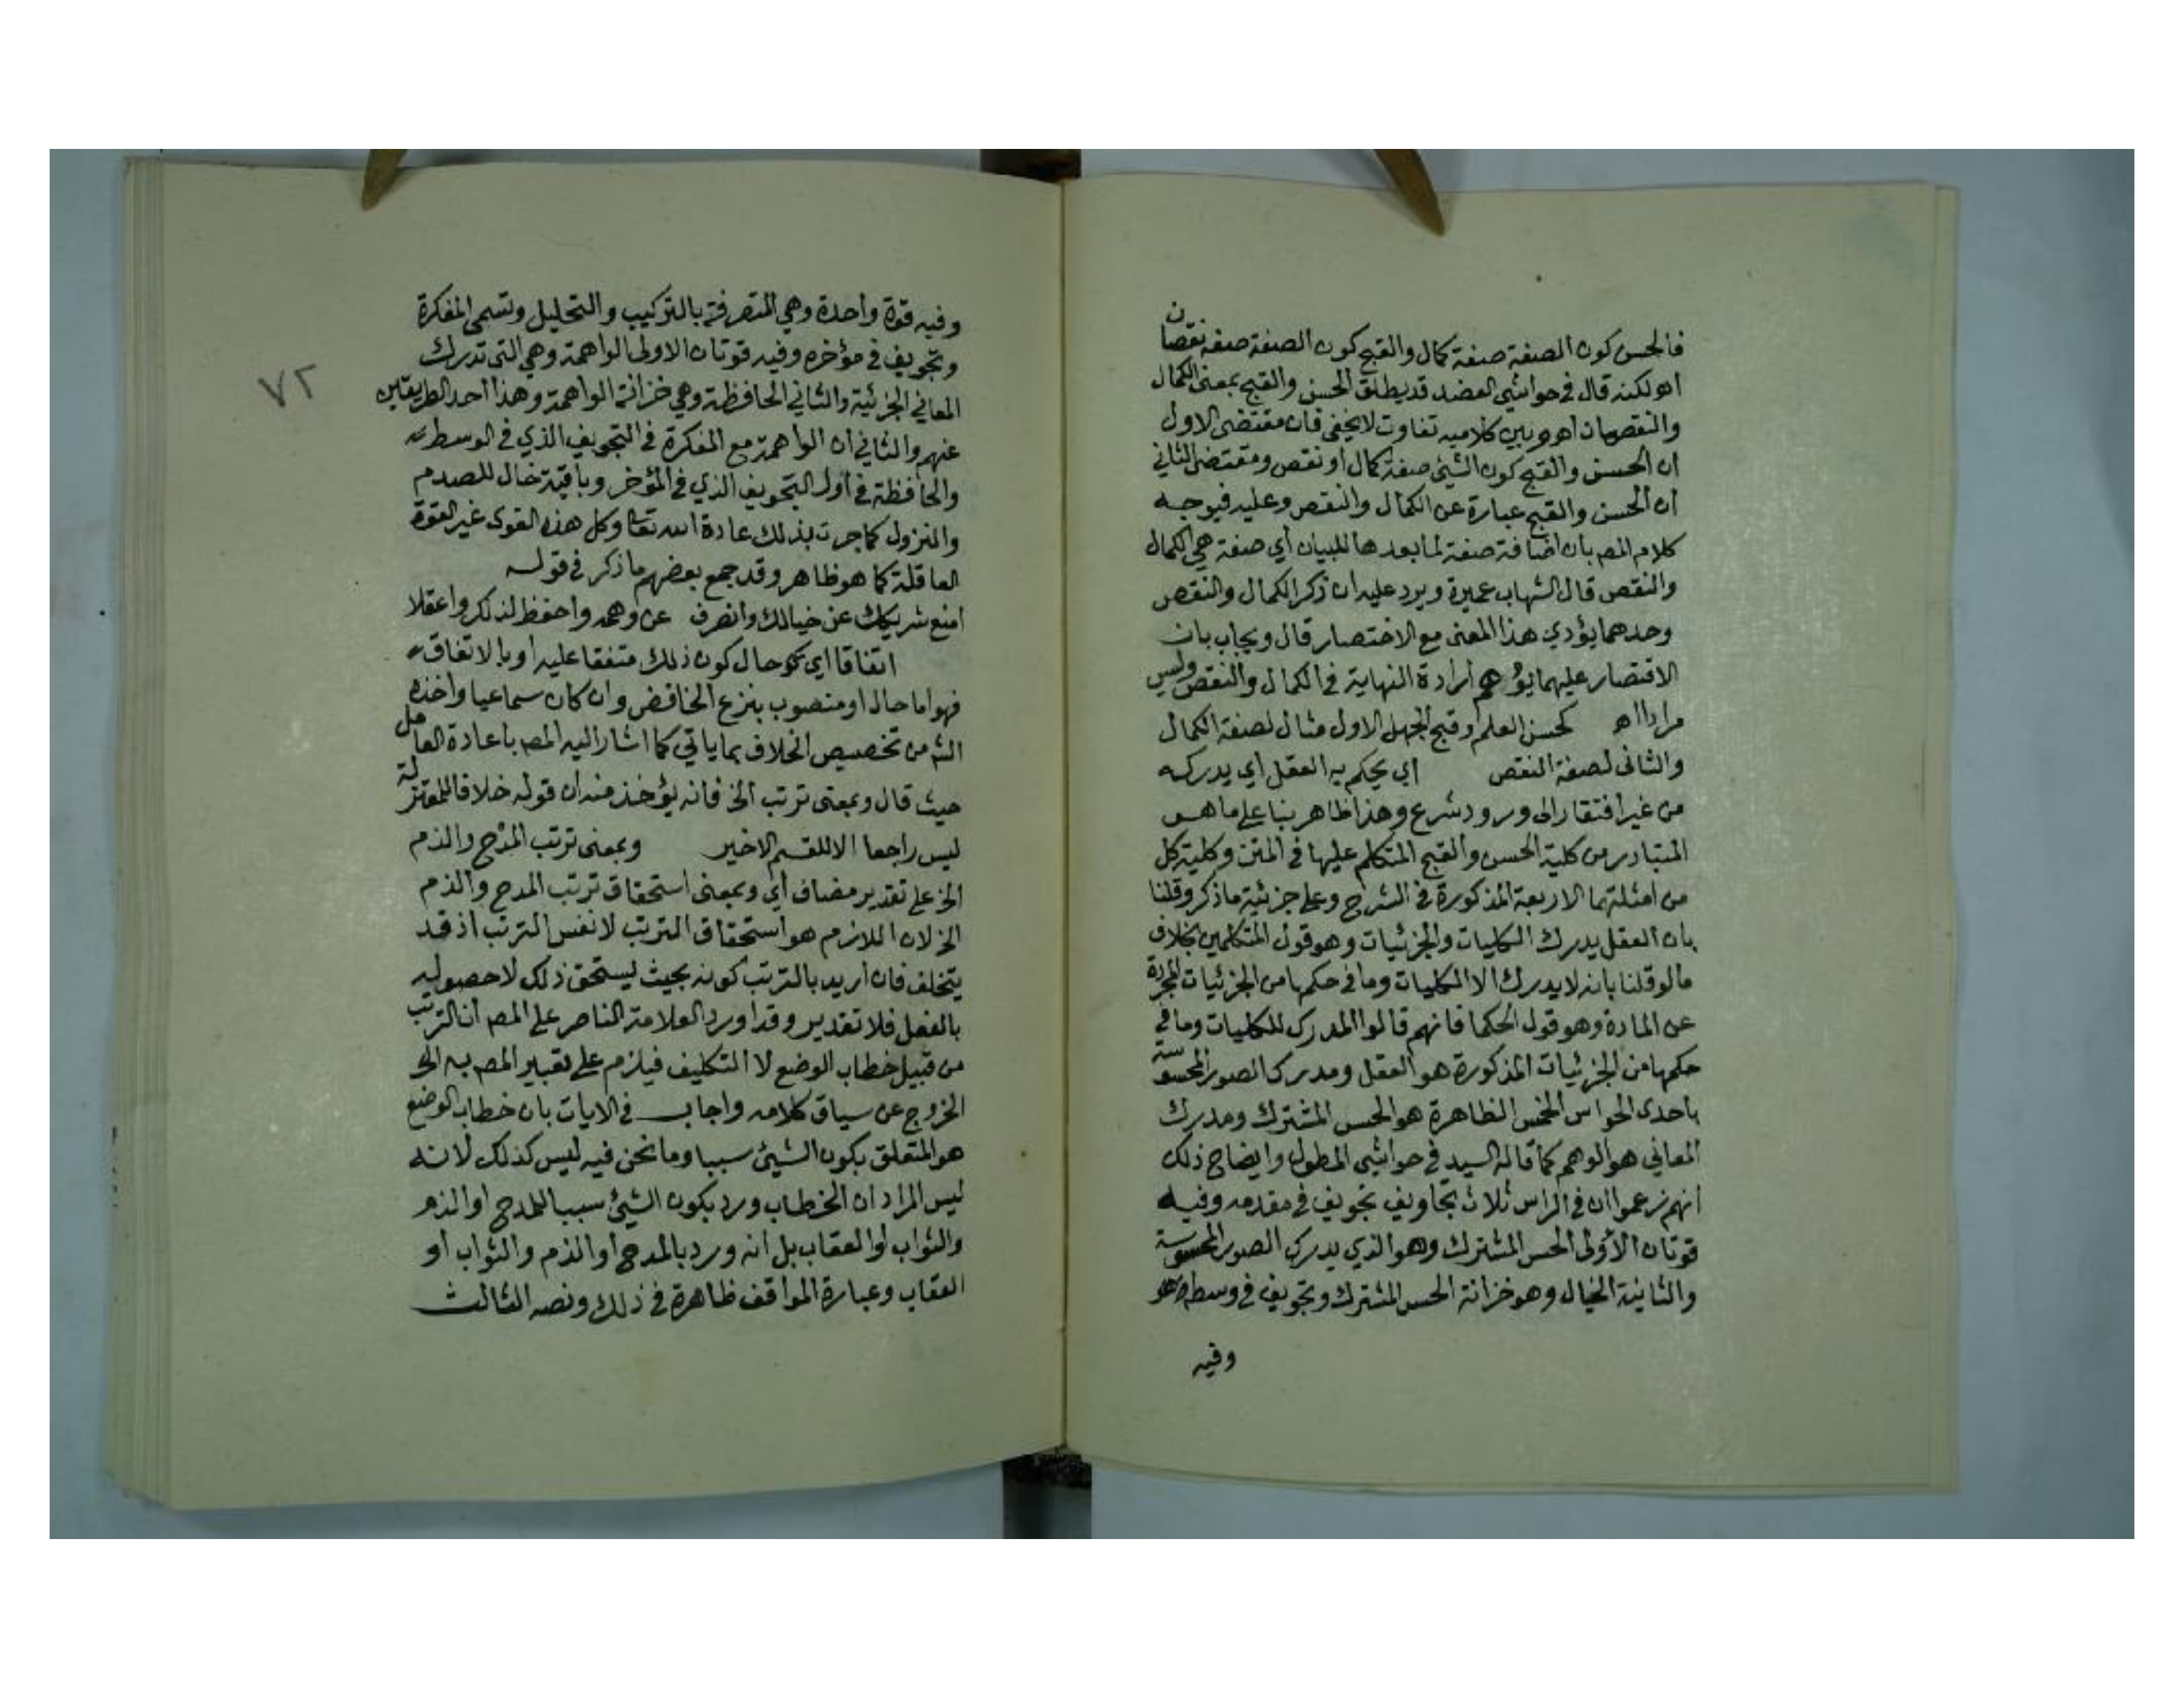 فالحسن كون الصفة صفة كمال والقبح كون الصفة صفة نقصان
اه لكنه قال في حواشي العضد قد يطلق الحسن والقبح بمعنى الكمال
والنقصان اه وبين كلاميه تفاوت لا يخفى فان مقتضى الاول
ان الحسن والقبح كون الشيئ صفة كمال او نقص ومقتضى الثاني
ان الحسن والقبح عبارة عن الكمال والنقص وعليه فيوجه
كلام المص بان اضافة صفة لما بعدها للبيان أي صفة هي الكمال
والنقص قال الشهاب عميرة ويرد عليه ان ذكر الكمال والنقص
وحدهما يؤدي هذا المعنى مع الاختصار قال ويجاب بان
الاقتصار عليهما يؤهم ارادة النهاية في الكمال والنقص وليس
مرادا اه كحسن العلم وقبح الجهل الاول مثال لصفة الكمال
والثاني لصفة النقص أي يحكم به العقل أي يدركه
من غير افتقار الى ورود شرع وهذا ظاهر بنا على ما هو
المتبادر من كلية الحسن والقبح المتكلم عليها في المتن وكلية كل
من امثلتهما الاربعة المذكورة في الشرح وعلى جزئية ما ذكر وقلنا
بان العقل يدرك الكليات والجزئيات وهو قول المتكلمين بخلاف
ما لو قلنا بانه لا يدرك الا الكليات وما في حكمها من الجزئيات المجردة
عن المادة وهو قول الحكما فانهم قالوا المدرك للكليات وما في
حكمها من الجزئيات المذكورة هو العقل ومدرك الصور المحسوسة
باحدى الحواس الخمس الظاهرة هو الحس المشترك ومدرك
المعاني هو الوهم كما قاله السيد في حواشي المطول وايضاح ذلك
انهم زعموا ان في الراس ثلاث تجاويف تجويف في مقدمه وفيه
قوتان الأولى الحس المشترك وهو الذي يدرك الصور المحسوسة
والثانية الخيال وهو خزانة الحس المشترك وتجويف في وسطه
وفيه
٧٢
وفيه قوة واحدة وهي المتصرفة بالتركيب والتحليل وتسمى المفكرة
وتجويف في مؤخره وفيه قوتان الاولى الواهمة وهي التي تدرك
المعاني الجزئية والثاني الحافظة وهي خزانة الواهمة وهذا احد الطريقين
عنهم والثاني ان الواهمة مع المفكرة في التجويف الذي في الوسط
والحافظة في اول التجويف الذي في المؤخر وباقيه خال للصدم
والنزول كما جرت بذلك عادة الله تعا وكل هذه القوى غير القوة
العاقلة كما هو ظاهر وقد جمع بعضهم ما ذكر في قوله
امنع شريكك عن خيالك وانصرف عن وهمه واحفظ لذلك واعقلا
اتفاقا اي حال كون ذلك متفقا عليه او بالاتفاق
فهو اما حال او منصوب بنزع الخافض وان كان سماعيا واخذه
الش من تخصيص الخلاف بما ياتي كما اشار اليه المص باعادة العامل
حيث قال وبمعنى ترتب الخ فانه يؤخذ منه ان قوله خلافا للمعتزلة
ليس راجعا الا للقسم الاخير وبمعنى ترتب المدح والذم
الخ على تقدير مضاف أي وبمعنى استحقاق ترتب المدح والذم
الخ لان اللازم هو استحقاق الترتب لا نفس الترتب اذ قد
يتخلف فان اريد بالترتب كونه بحيث يستحق ذلك لا حصوله
بالفعل فلا تقدير وقد اورد العلامة الناصر على المص ان الترتب
من قبيل خطاب الوضع لا التكليف فيلزم على تعبير المص به الخ
الخروج عن سياق كلامه واجاب في الايات بان خطاب الوضع
هو المتعلق بكون الشيئ سببا وما نحن فيه ليس كذلك لانه
ليس المراد ان الخطاب ورد بكون الشيئ سببا للمدح او الذم
والثواب او العقاب بل انه ورد بالمدح او الذم والثواب او
العقاب وعبارة المواقف ظاهرة في ذلك ونصه الثالث